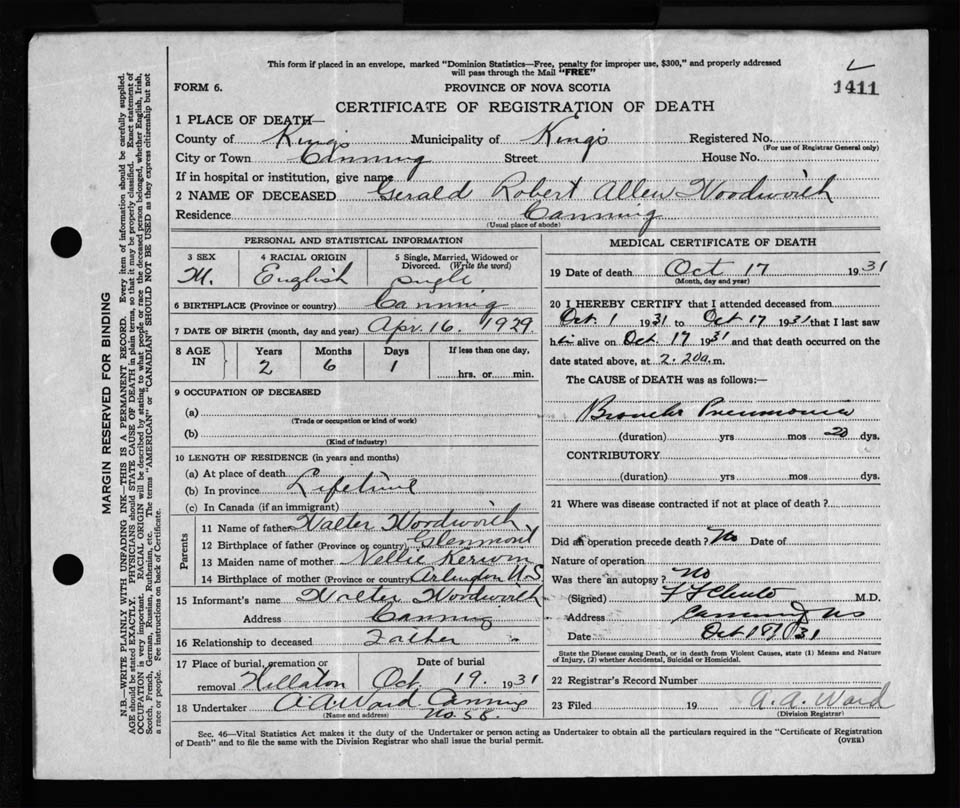 This form if placed in an envelope, marked "Dominion Statistics—Free, penalty for improper use, $300," and properly addressed
will pass through the Mail "FREE"
1411
FORM 6.
PROVINCE OF NOVA SCOTIA
CERTIFICATE OF REGISTRATION OF DEATH
1 PLACE OF DEATH—
County of Kings Municipality of Kings Registered No.
(For use of Registrar General only)
City or Town Canning Street House No.
If in hospital or institution, give name
2 NAME OF DECEASED Gerald Robert Allen Woodworth
Residence Canning
(Usual place of abode)
PERSONAL AND STATISTICAL INFORMATION
3 SEX 4 RACIAL ORIGIN 5 Single, Married, Widowed or
Divorced. (Write the word)
M. English Single
6 BIRTHPLACE (Province or country) Canning
7 DATE OF BIRTH (month, day and year) Apr. 16. 1929.
8 AGE IN Years Months Days If less than one day,
2 6 1 hrs. or min.
9 OCCUPATION OF DECEASED
(a)
(Trade or occupation or kind of work)
(b)
(Kind of industry)
10 LENGTH OF RESIDENCE (in years and months)
(a) At place of death
(b) In province Lifetime
(c) In Canada (if an immigrant)
Parents
11 Name of father Walter Woodworth
12 Birthplace of father (Province or country) Glenmont
13 Maiden name of mother Nellie Kerwin
14 Birthplace of mother (Province or country) N.S
15 Informant's name Walter Woodworth
Address Canning
16 Relationship to deceased Father
17 Place of burial, cremation or
removal Hillaton
Date of burial
Oct 19. 1931
18 Undertaker A. A. Ward Canning
(Name and address)
MEDICAL CERTIFICATE OF DEATH
19 Date of death Oct 17 1931
(Month, day and year)
20 I HEREBY CERTIFY that I attended deceased from
Oct. 1 1931 to Oct 17 1931 that I last saw
him alive on Oct 17 1931 and that death occurred on the
date stated above, at 2.20 a.m.
The CAUSE of DEATH was as follows:—
Broncho Pneumonia
(duration) yrs mos 20 dys.
CONTRIBUTORY
(duration) yrs mos dys.
21 Where was disease contracted if not at place of death?
Did an operation precede death? No Date of
Nature of operation
Was there an autopsy? No
(Signed) M.D.
Address Canning NS
Date Oct 18/31
State the Disease causing Death, or in death from Violent Causes, state (1) Means and Nature
of Injury, (2) whether Accidental, Suicidal or Homicidal.
22 Registrar's Record Number
23 Filed 19 A. A. Ward
(Division Registrar)
Sec. 46—Vital Statistics Act makes it the duty of the Undertaker or person acting as Undertaker to obtain all the particulars required in the "Certificate of Registration
of Death" and to file the same with the Division Registrar who shall issue the burial permit.
(OVER)
MARGIN RESERVED FOR BINDING
N.B.—WRITE PLAINLY WITH UNFADING INK—THIS IS A PERMANENT RECORD. Every item of information should be carefully supplied.
AGE should be stated EXACTLY. PHYSICIANS should STATE CAUSE OF DEATH in plain terms, so that it may be properly classified. Exact statement of
OCCUPATION is very important. RACIAL ORIGIN will be described by stating to what people or race the deceased person belonged, whether English, Irish,
Scotch, French, German, Russian, Ruthenian, etc. The terms "AMERICAN" or "CANADIAN" SHOULD NOT BE USED as they express citizenship but not
a race or people. Fee instructions on back of Certificate.